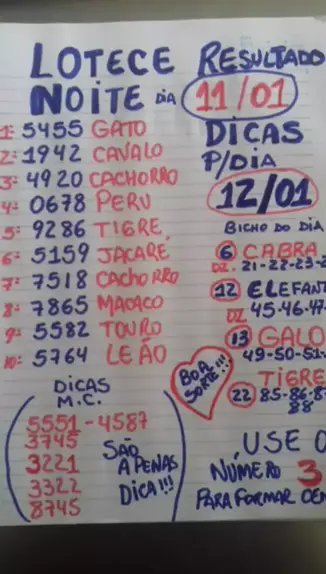 LOTECE RESULTADO
NOITE DIA 11/01
1º 5455 GATO
2º 1942 CAVALO
3º 4920 CACHORRO
4º 0678 PERU
5º 9286 TIGRE
6º 5159 JACARE
7º 7518 CACHORRO
8º 7865 MACACO
9º 5582 TOURO
10º 5764 LEÃO
DICAS
M.C.
5551 - 4587
3745
3221
3322
8745
SÃO
APENAS
DICA!!!
DICAS
P/DIA
12/01
BICHO DO DIA
6 CABRA
DZ. 21-22-23-2
12 ELEFAN
DZ. 45-46-47-
13 GALO
49-50-51-
TIGRE
22 85-86-8
88
BOA
SORTE!!!
USE O
NÚMERO 3
PARA FORMAR CEN